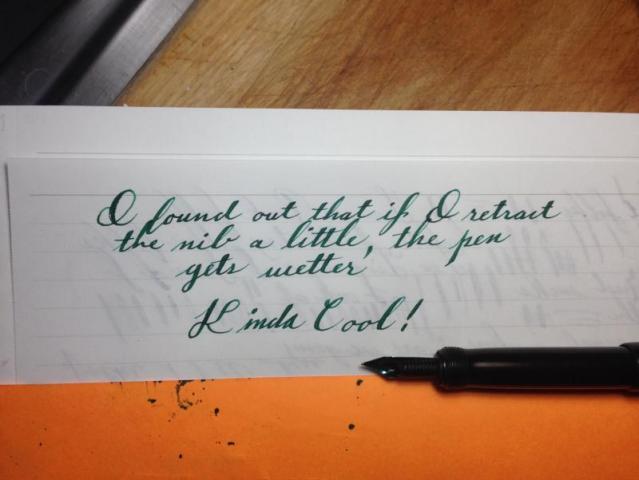 I found out that if I retract
the nib a little, the pen
gets wetter
Kinda Cool!